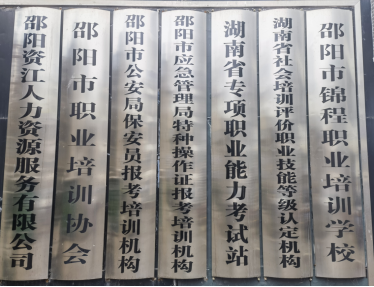 邵阳市锦程职业培训学校
湖南省社会培训评价职业技能等级认定机构
湖南省专项职业能力考试站
邵阳市应急管理局特种操作证报考培训机构
邵阳市公安局保安员报考培训机构
邵阳市职业培训协会
邵阳资江人力资源服务有限公司